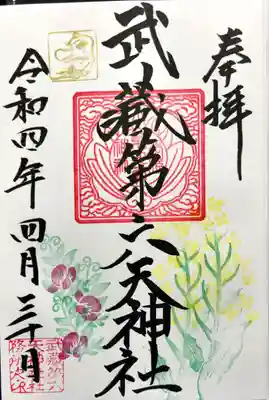 奉拝
武蔵第六天神社
令和四年四月三十日